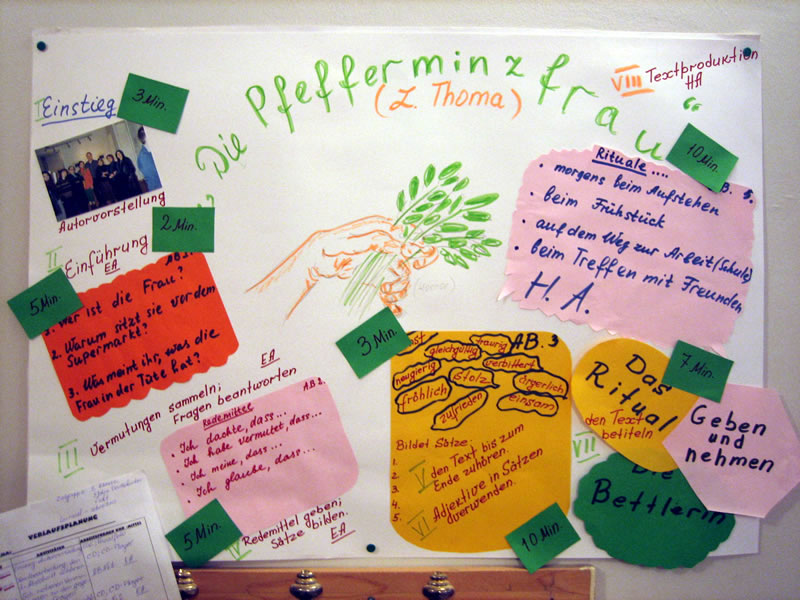 „Die Pfefferminzfrau“
(L. Thoma)
I Einstieg
3 Min.
Autorvorstellung
2 Min.
II Einführung
EA
5 Min.
1. Wer ist die Frau?
2. Warum sitzt sie vor dem
Supermarkt?
3. Was meint ihr, was die
Frau in der Tüte hat?
III Vermutungen sammeln;
Fragen beantworten
EA
AB 2.
Redemittel
• Ich dachte, dass...
• Ich habe vermutet, dass...
• Ich meine, dass...
• Ich glaube, dass...
5 Min.
IV Redemittel geben;
Sätze bilden.
EA
3 Min.
AB. 3
traurig
gleichgültig
neugierig
verbittert
stolz
ärgerlich
fröhlich
zufrieden
einsam
Bildet Sätze
1.
2.
3.
4.
5.
V den Text bis zum
Ende zuhören.
VI Adjektive in Sätzen
verwenden.
10 Min.
VII
Das
Ritual
den Text
betiteln
7 Min.
Geben
und
nehmen
Die
Bettlerin
VIII Textproduktion
HA
10 Min.
B. 5.
Rituale....
• morgens beim Aufstehen
• beim Frühstück
• auf dem Weg zur Arbeit (Schule)
• beim Treffen mit Freunden
H. A.
VERLAUFSPLANUNG